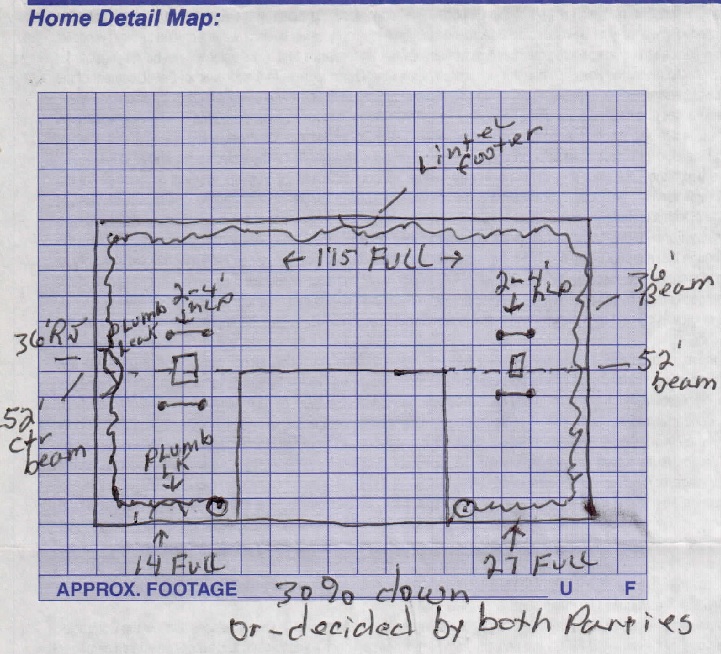 Home Detail Map:
Lintel
footer
← 115 FULL →
2-4'
HLP
2-4'
HLP
36'
Beam
PLUMB
Leak
36' RJ
52'
beam
52'
ctr
beam
PLUMB
LK
14 FULL
27 FULL
APPROX. FOOTAGE 30% down U F
or-decided by both Parties